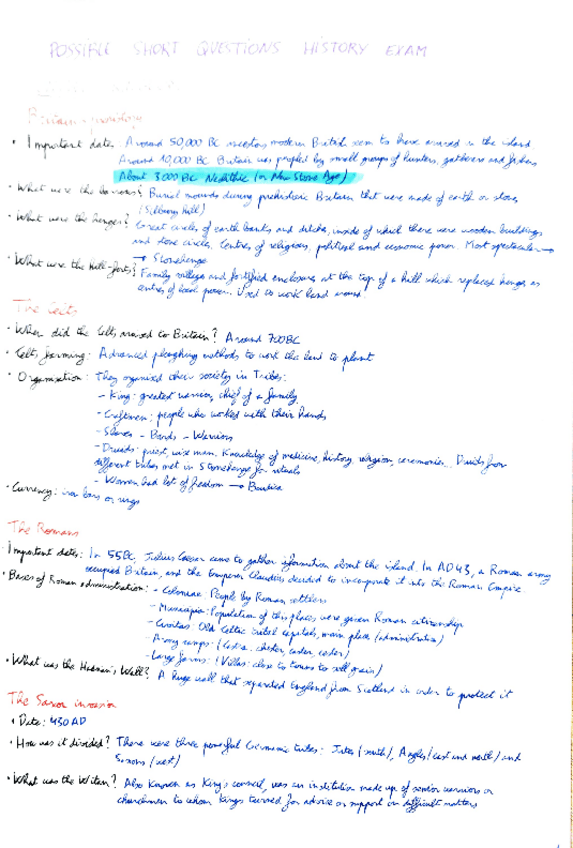 POSSIBLE SHORT QUESTIONS HISTORY EXAM
Britain
• Important date. Around 50,000 BC modern British seem to have arrived in the island
Around 10,000 BC Britain was peopled by small groups of hunters, gatherers and fishers
About 3000 BC Neolithic (or New Stone Age)
• What were the barrows? Burial mounds during prehistoric Britain that were made of earth or stones
(Silbury Hill)
• What were the henges? Great circles of earth banks and ditches, inside of which there were wooden buildings
and stone circles. Centres of religious, political and economic power. Most spectacular →
→ Stonehenge
• What were the Hill-forts? Family villages and fortified enclosures at the top of a hill which replaced henges as
centres of local power. Used to work land around
The Celts
• When did the Celts arrived to Britain? Around 700BC
• Celts farming: Advanced ploughing methods to work the land to plant
• Organisation: They organised their society in Tribes:
- King: greatest warrior, chief of a family
- Craftmen: people who worked with their hands
- Slaves - Bards - Warriors
- Druids: priest, wise man. Knowledge of medicine, history, religion, ceremonies... Druids from
different tribes met in Stonehenge for rituals
- Women had lot of freedom → Boudica
• Currency: iron bars or rings
The Romans
• Important dates: In 55BC, Julius Caesar came to gather information about the island. In AD43, a Roman army
occupied Britain, and the Emperor Claudius decided to incorporate it into the Roman Empire
• Bases of Roman administration: - Coloniae: People by Roman settlers
- Municipia: Population of this places were given Roman citizenship
- Civitas: Old Celtic tribal capitals, main place (administration)
- Army camps: (castra, chester, caster, cester)
- Large farms: (Villas: close to towns to sell grain)
• What was the Hadrian's Wall? A huge wall that separated England from Scotland in order to protect it
The Saxon invasion
• Date: 430 AD
• How was it divided? There were three powerful Germanic tribes: Jutes (south), Angles (east and north) and
Saxons (west)
• What was the Witan? Also known as King's council, was an institution made up of senior warriors or
churchmen to whom Kings turned for advice or support on difficult matters